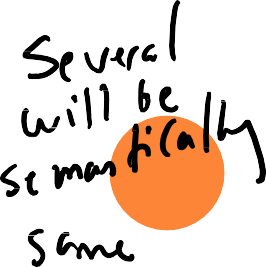 Several
will be
semantically
same